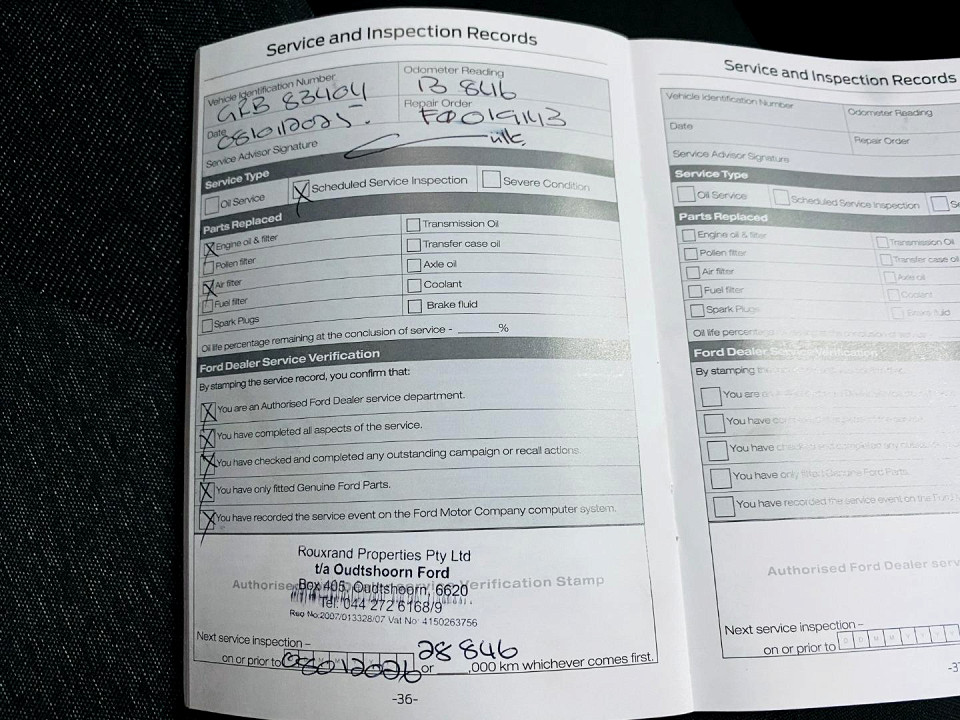 Service and Inspection Records
Vehicle Identification Number
Odometer Reading
GRB 83404
13 846
Date
Repair Order
08/01/2025.
F0019143
Service Advisor Signature
Service Type
Oil Service
Scheduled Service Inspection
Severe Condition
Parts Replaced
Engine oil & filter
Pollen filter
Air filter
Fuel filter
Spark Plugs
Transmission Oil
Transfer case oil
Axle oil
Coolant
Brake fluid
Oil life percentage remaining at the conclusion of service - ______%
Ford Dealer Service Verification
By stamping the service record, you confirm that:
You are an Authorised Ford Dealer service department.
You have completed all aspects of the service.
You have checked and completed any outstanding campaign or recall actions.
You have only fitted Genuine Ford Parts.
You have recorded the service event on the Ford Motor Company computer system.
Rouxrand Properties Pty Ltd
t/a Oudtshoorn Ford
Authorised Verification Stamp
Box 405, Oudtshoorn, 6620
Tel: 044 272 6168/9
Reg No:2007/013328/07 Vat No: 4150263756
Next service inspection –
28 846
on or prior to 08012026 or ____,000 km whichever comes first.
-36-
Service and Inspection Records
Vehicle Identification Number
Odometer Reading
Date
Repair Order
Service Advisor Signature
Service Type
Oil Service
Scheduled Service Inspection
Se
Parts Replaced
Engine oil & filter
Pollen filter
Air filter
Fuel filter
Spark Plugs
Transmission Oil
Transfer case oil
Axle oil
Coolant
Brake fluid
Oil life percent
Ford Dealer Service Verification
By stamping
You are
You have
You have checked and completed any
You have only fitted Genuine Ford Parts.
You have recorded the service event on the Ford
Authorised Ford Dealer serv
Next service inspection –
on or prior to